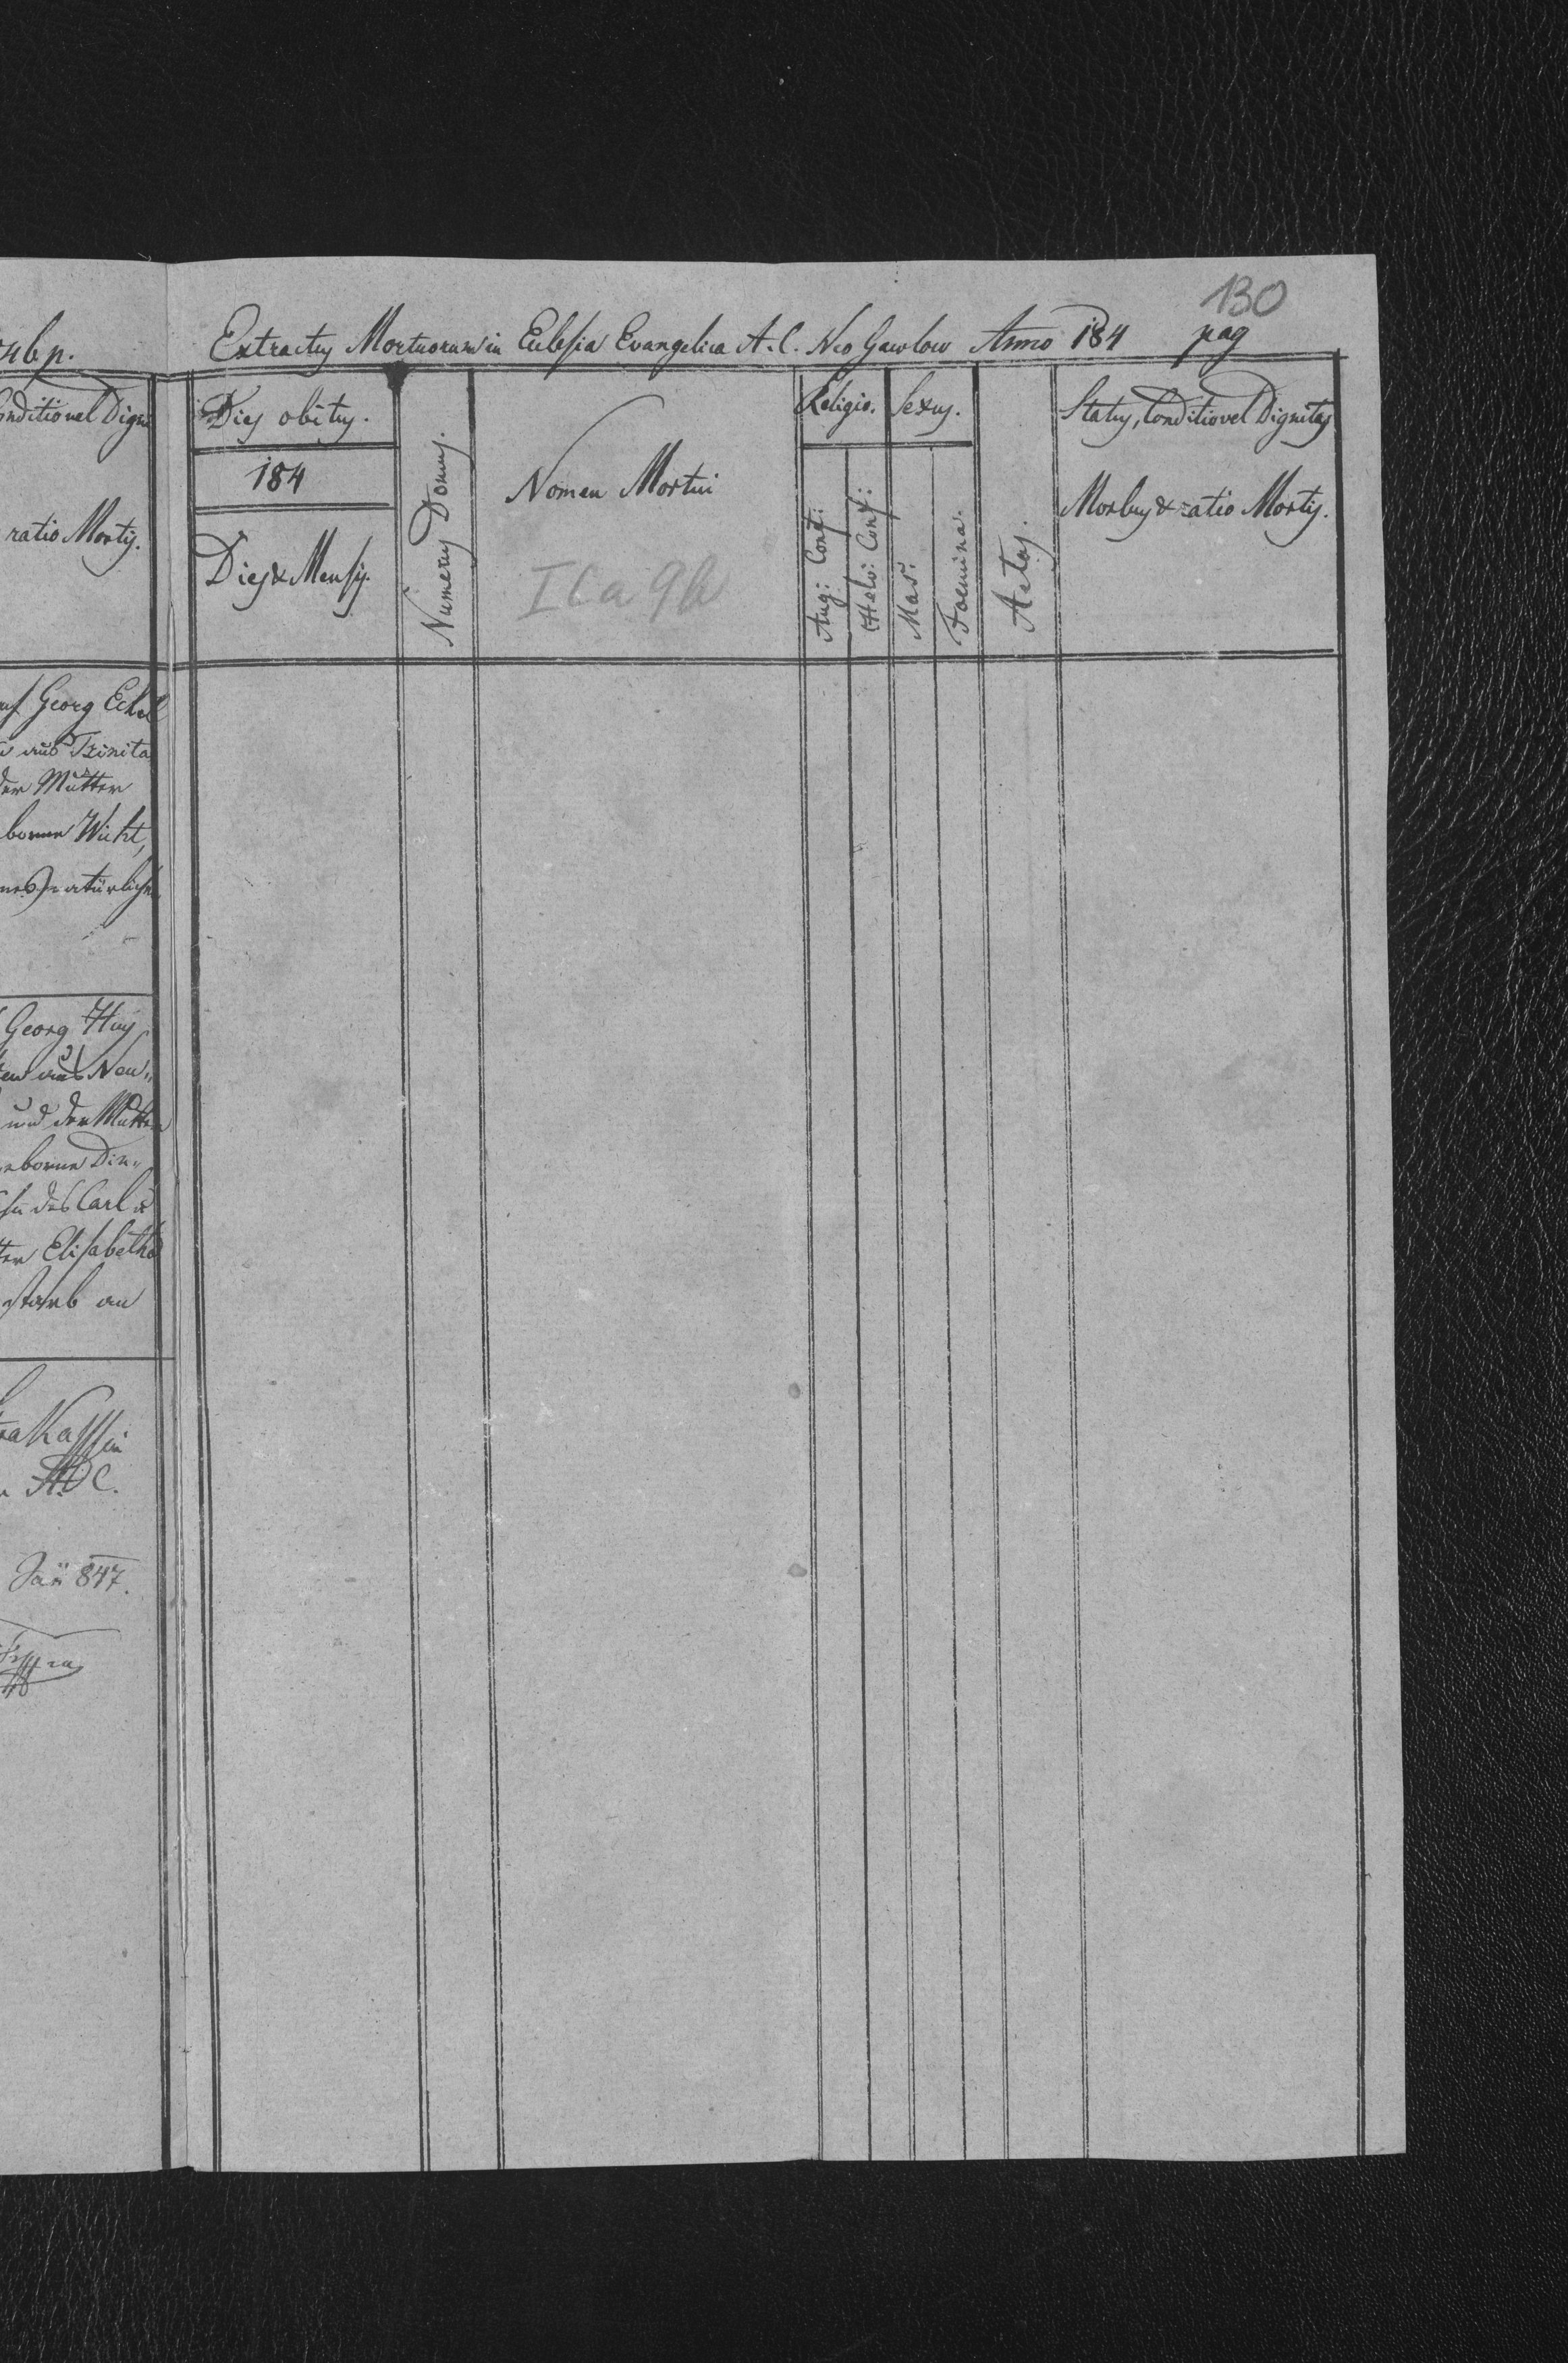 46 p.
Conditio vel Digni
ratio Mortis.
Georg Eckel
aus Trinita
der Mutter
borne Wicht,
natürlichen
Georg Huy
aus Neu„
und der Mutter
geborne Din„
des Carl u
Elisabetha
starb an
A. C.
Jan 847.
130
Extractus Mortuorum in Eclesia Evangelica A. C. Neo Gawlow Anno 184 pag
Dies obitus.
184
Dies & Mensis.
Numerus Domus.
Nomen Mortui
I C a 9b
Religio.
Aug: Conf:
Helv: Conf:
Sexus.
Mas.
Foemina.
Aetas.
Status, Conditio vel Dignitas
Morbus & ratio Mortis.